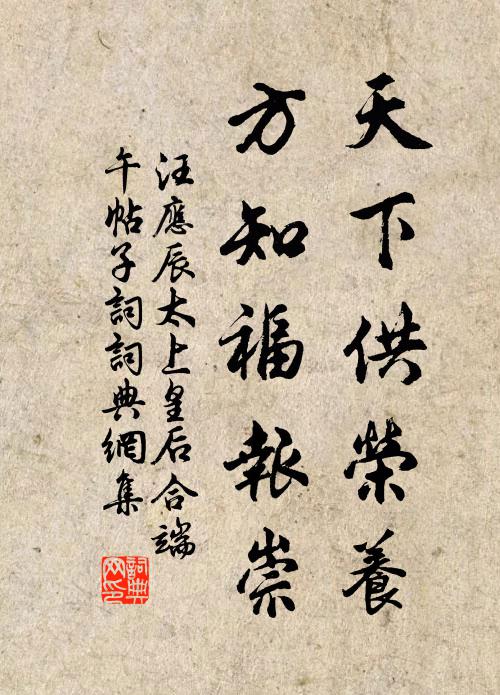 天下供榮養
方知福報崇
汪應辰太上皇后合端
午帖子詞詞典網集
詞典
网印